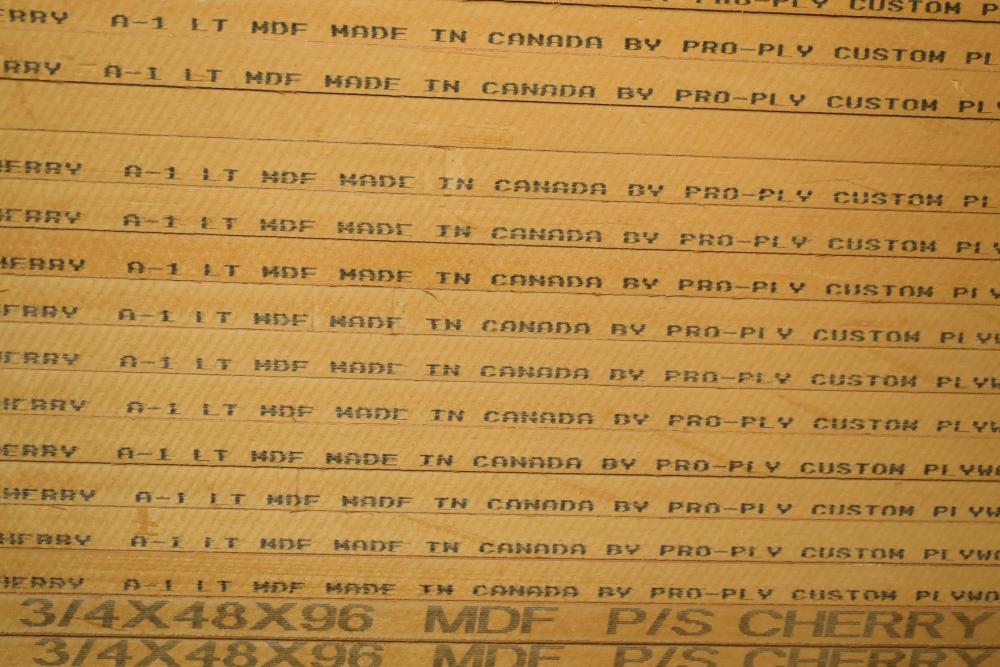 CUSTOM
ERRY A-1 LT MDF MADE IN CANADA BY PRO-PLY CUSTOM PL
RRY A-1 LT MDF MADE IN CANADA BY PRO-PLY CUSTOM PLY
ERRY A-1 LT MDF MADE IN CANADA BY PRO-PLY CUSTOM PL
HERRY A-1 LT MDF MADE IN CANADA BY PRO-PLY CUSTOM PLY
HERRY A-1 LT MDF MADE IN CANADA BY PRO-PLY CUSTOM PLY
ERRY A-1 LT MDF MADE IN CANADA BY PRO-PLY CUSTOM PLYW
ERRY A-1 LT MDF MADE IN CANADA BY PRO-PLY CUSTOM PLYW
HERRY A-1 LT MDF MADE IN CANADA BY PRO-PLY CUSTOM PLYW
ERRY A-1 LT MDF MADE IN CANADA BY PRO-PLY CUSTOM PLYWO
CHERRY A-1 LT MDF MADE IN CANADA BY PRO-PLY CUSTOM PLYW
HERRY A-1 LT MDF MADE IN CANADA BY PRO-PLY CUSTOM PLYWO
HERRY A-1 LT MDF MADE IN CANADA BY PRO-PLY CUSTOM PLYWO
3/4X48X96 MDF P/S CHERRY
3/4X48X96 MDF P/S CHERRY